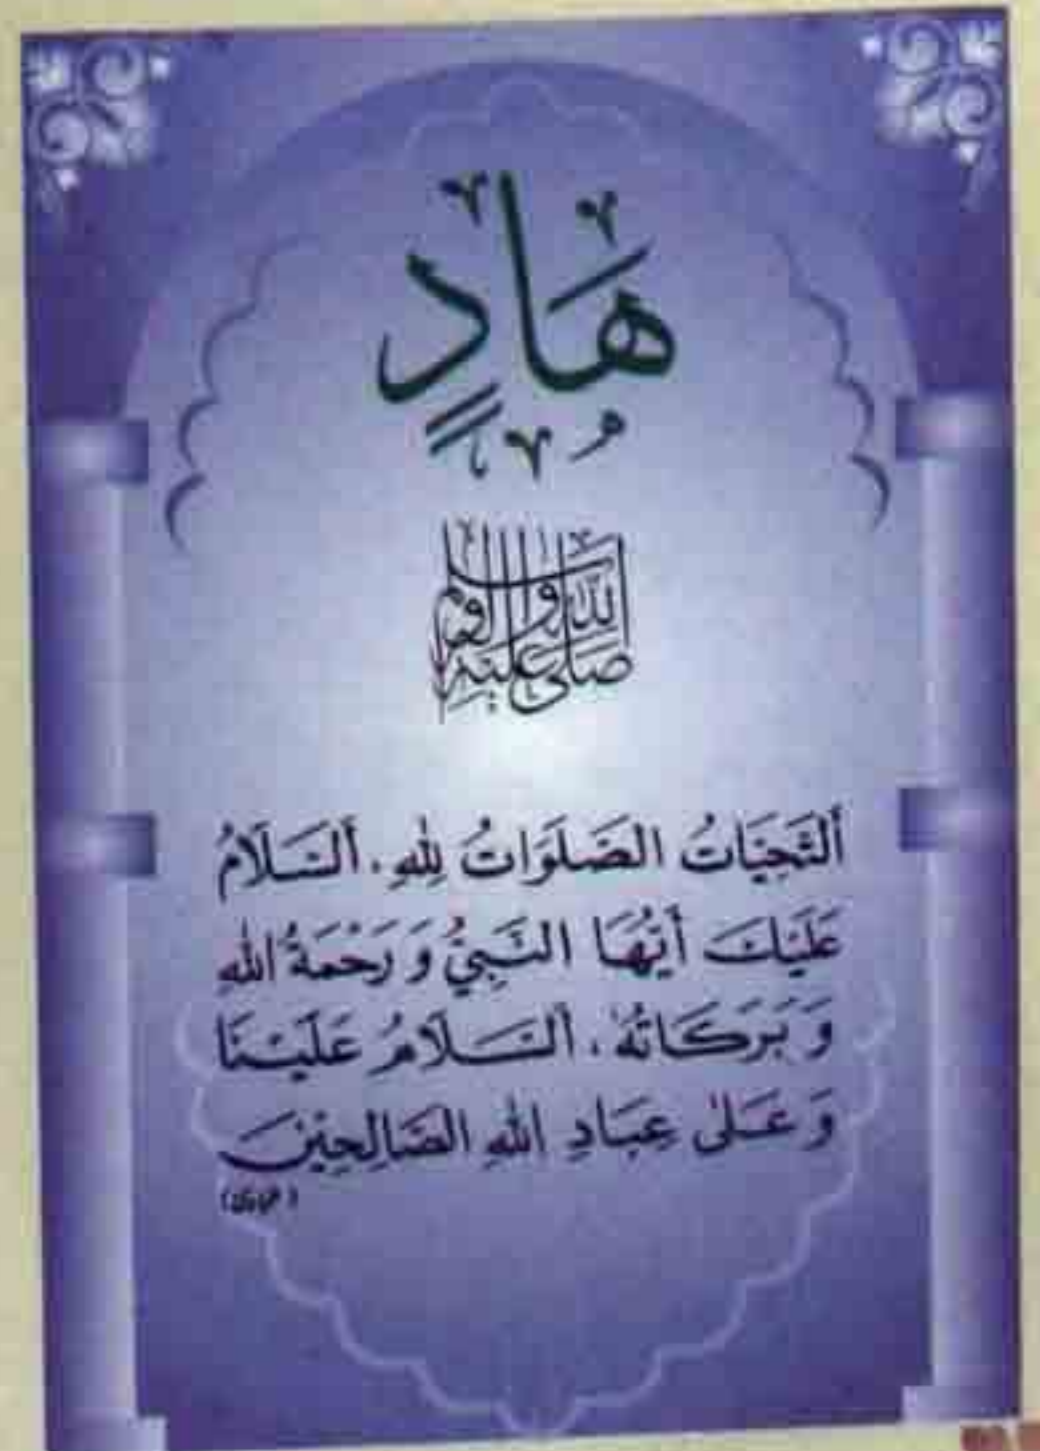 هَادٍ
صَلَّى اللهُ عَلَيْهِ وَآلِهِ وَسَلَّمَ
أَلتَّحِيَّاتُ الصَّلَوَاتُ لِلّٰهِ. أَلسَّلَامُ
عَلَيْكَ أَيُّهَا النَّبِيُّ وَ رَحْمَةُ اللهِ
وَ بَرَكَاتُهٗ. أَلسَّلَامُ عَلَيْنَا
وَ عَلٰى عِبَادِ اللهِ الصَّالِحِيْنَ